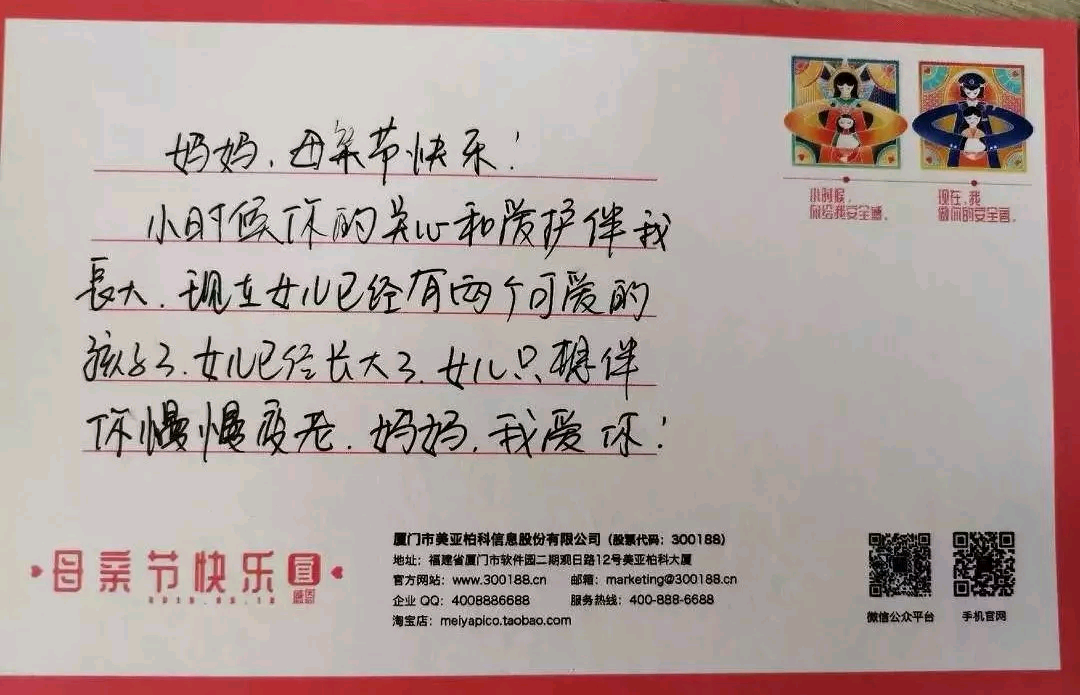 妈妈，母亲节快乐！
小时候你的关心和爱护伴我
長大，现在女儿已经有两个可爱的
孩子了，女儿已经长大了，女儿只想伴
你慢慢变老，妈妈，我爱你！
小时候，
你给我安全感。
现在，我
做你的安全官。
母亲节快乐
感恩
厦门市美亚柏科信息股份有限公司（股票代码：300188）
地址：福建省厦门市软件园二期观日路12号美亚柏科大厦
官方网站：www.300188.cn 邮箱：marketing@300188.cn
企业 QQ：4008886688 服务热线：400-888-6688
淘宝店：meiyapico.taobao.com
微信公众平台 手机官网